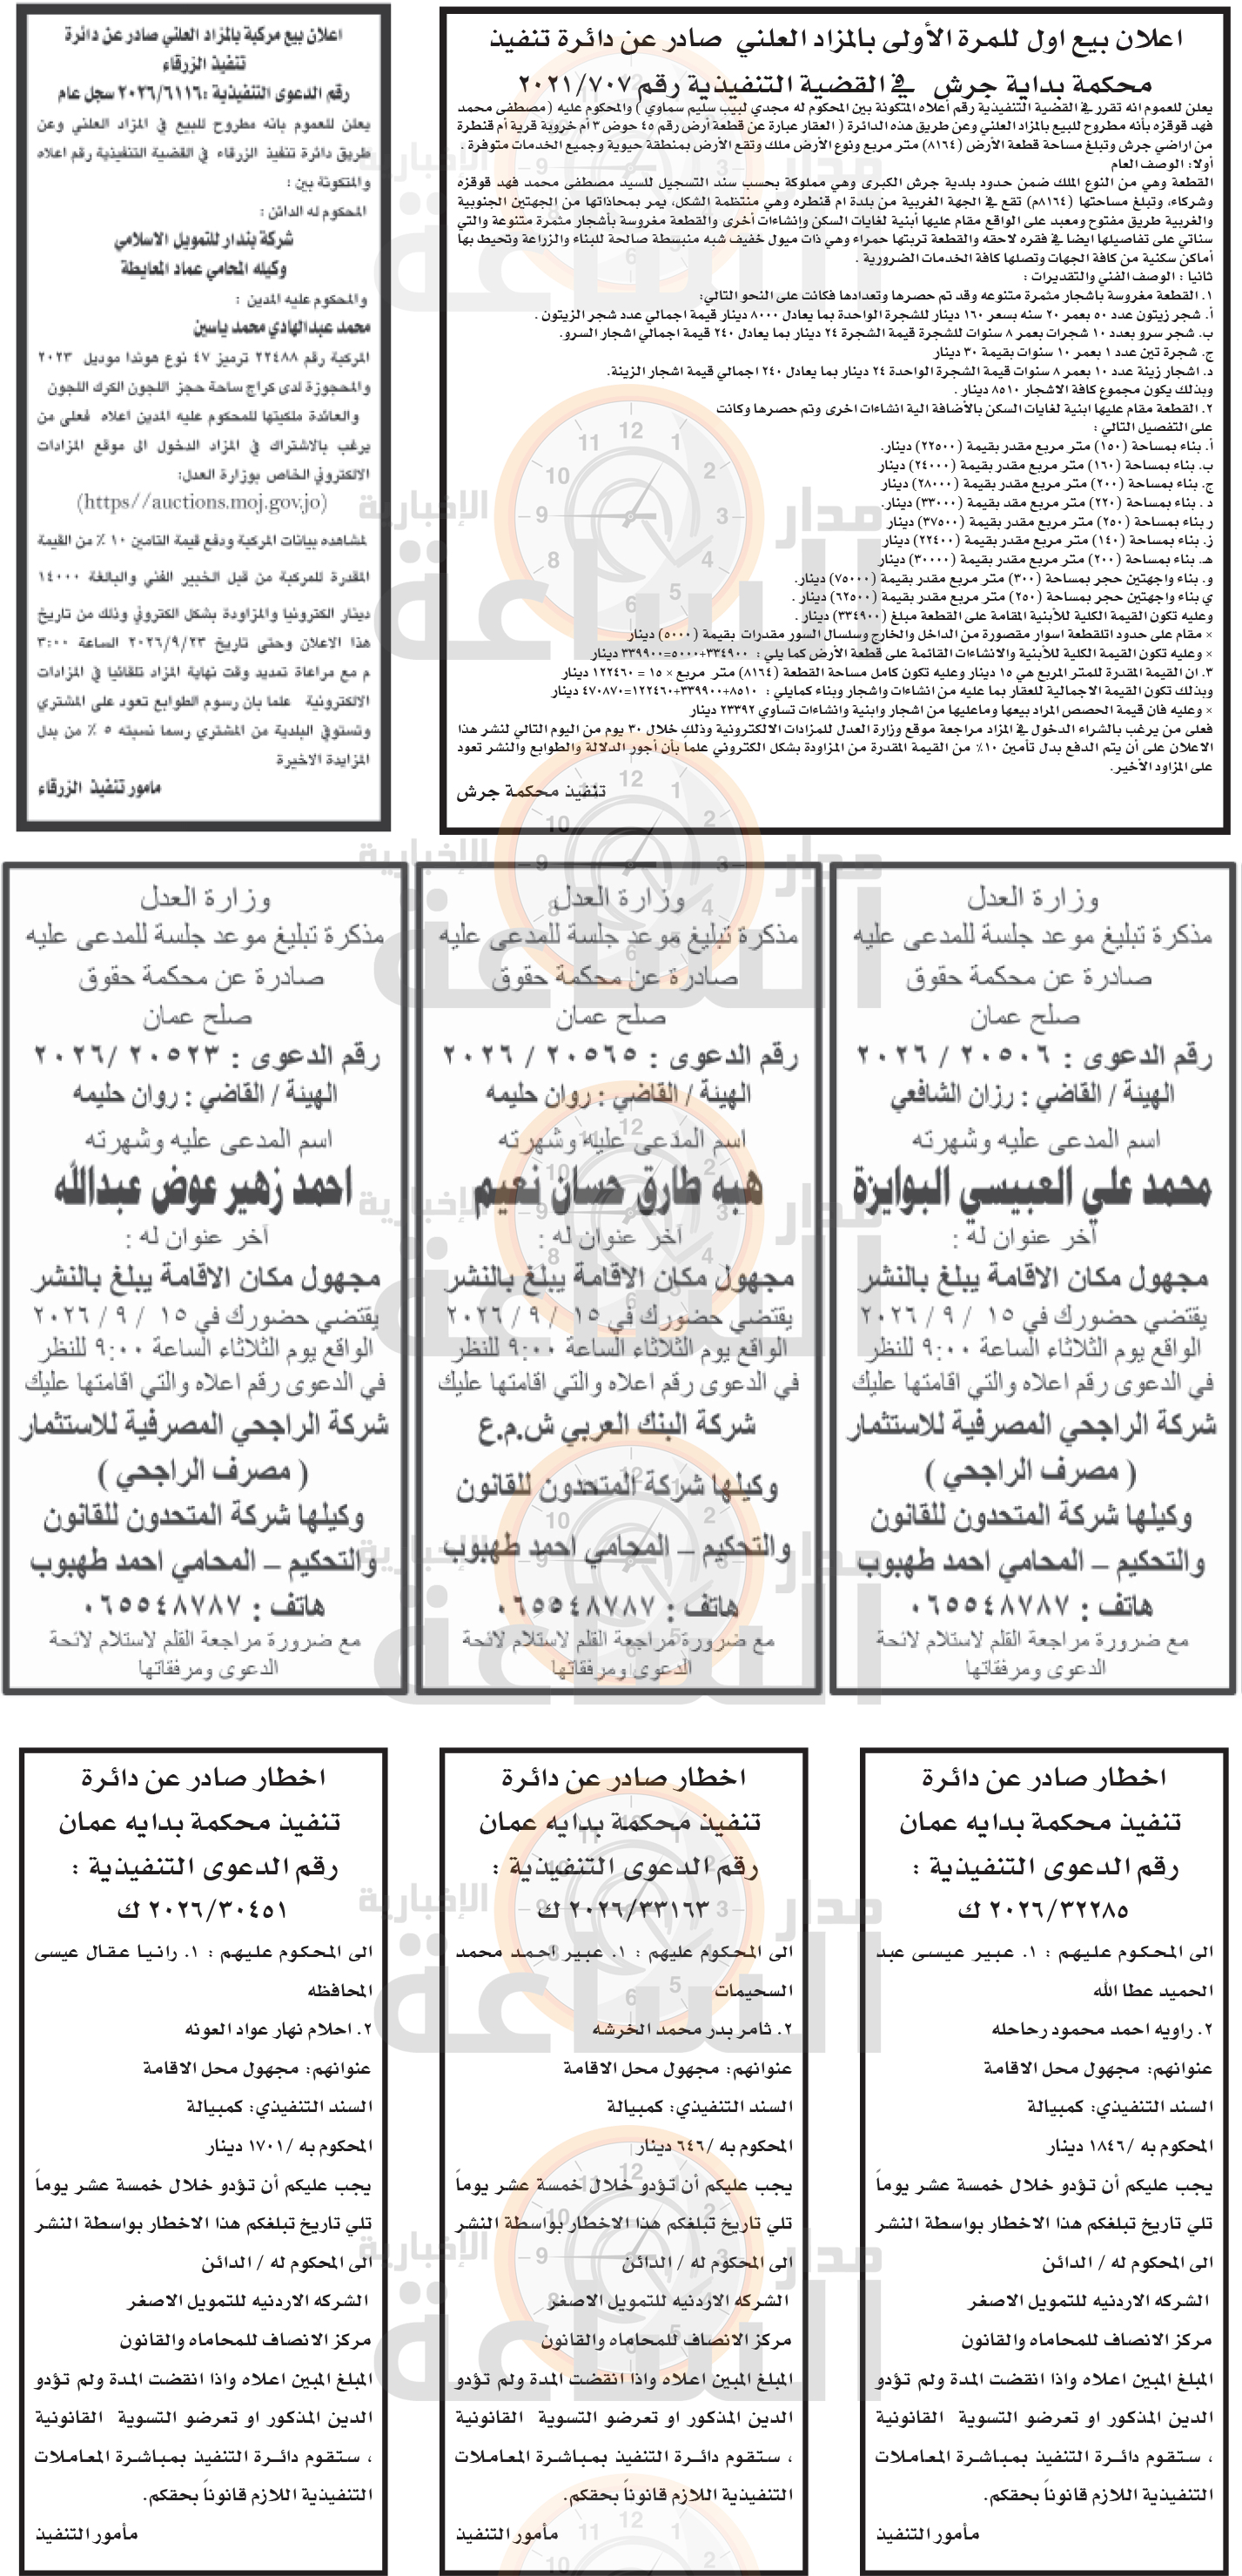 اعلان بيع اول للمرة الأولى بالمزاد العلني صادر عن دائرة تنفيذ
محكمة بداية جرش في القضية التنفيذية رقم ٢٠٢١/٧٠٧
يعلن للعموم انه تقرر في القضية التنفيذية رقم أعلاه المتكونة بين المحكوم له مجدي لبيب سليم سماوي ) والمحكوم عليه (مصطفى محمد
فهد قوقزه بأنه مطروح للبيع بالمزاد العلني وعن طريق هذه الدائرة ( العقار عبارة عن قطعة أرض رقم ٤٥ حوض ٣ أم خروية قرية أم قنطرة
من اراضي جرش وتبلغ مساحة قطعة الأرض (٨١٦٤) متر مربع ونوع الأرض ملك وتقع الأرض بمنطقة حيوية وجميع الخدمات متوفرة .
أولا: الوصف العام
القطعة وهي من النوع الملك ضمن حدود بلدية جرش الكبرى وهي مملوكة بحسب سند التسجيل للسيد مصطفى محمد فهد قوقزه
وشركاء، وتبلغ مساحتها (٨١٦٤م) تقع في الجهة الغربية من بلدة ام قنطره وهي منتظمة الشكل، يمر بمحاذاتها من الجهتين الجنوبية
والغربية طريق مفتوح ومعبد على الواقع مقام عليها أبنية لغايات السكن وإنشاءات أخرى والقطعة مغروسة بأشجار مثمرة متنوعة والتي
سناتي على تفاصيلها ايضا في فقره لاحقه والقطعة تربتها حمراء وهي ذات ميول خفيف شبه منبسطة صالحة للبناء والزراعة وتحيط بها
أماكن سكنية من كافة الجهات وتصلها كافة الخدمات الضرورية .
ثانيا : الوصف الفني والتقديرات :
١. القطعة مغروسة بأشجار مثمرة متنوعه وقد تم حصرها وتعدادها فكانت على النحو التالي:
أ. شجر زيتون عدد ٥٠ بعمر ٢٠ سنه بسعر ١٦٠ دينار للشجرة الواحدة بما يعادل ٨٠٠٠ دينار قيمة اجمالي عدد شجر الزيتون .
ب. شجر سرو بعدد ١٠ شجرات بعمر ٨ سنوات للشجرة قيمة الشجرة ٢٤ دينار بما يعادل ٢٤٠ قيمة اجمالي اشجار السرو.
ج. شجرة تين عدد ١ بعمر ١٠ سنوات بقيمة ٣٠ دينار
د. اشجار زينة عدد ١٠ بعمر ٨ سنوات قيمة الشجرة الواحدة ٢٤ دينار بما يعادل ٢٤٠ اجمالي قيمة اشجار الزينة.
وبذلك يكون مجموع كافة الاشجار ٨٥١٠ دينار .
٢. القطعة مقام عليها ابنية لغايات السكن بالأضافة الية انشاءات اخرى وتم حصرها وكانت
على التفصيل التالي :
أ. بناء بمساحة (١٥٠) متر مربع مقدر بقيمة (٢٢٥٠٠) دينار.
ب. بناء بمساحة (١٦٠) متر مربع مقدر بقيمة (٢٤٠٠٠) دينار
ج. بناء بمساحة (٢٠٠) متر مربع مقدر بقيمة (٢٨٠٠٠) دينار
د . بناء بمساحة (٢٢٠) متر مربع مقدر بقيمة (٣٣٠٠٠) دينار.
ر بناء بمساحة (٢٥٠) متر مربع مقدر بقيمة (٣٧٥٠٠) دينار
ز. بناء بمساحة (١٤٠) متر مربع مقدر بقيمة (٢٢٤٠٠) دينار
هـ. بناء بمساحة (٢٠٠) متر مربع مقدر بقيمة (٣٠٠٠٠) دينار
و. بناء واجهتين حجر بمساحة (٣٠٠) متر مربع مقدر بقيمة (٧٥٠٠٠) دينار.
ي بناء واجهتين حجر بمساحة (٢٥٠) متر مربع مقدر بقيمة (٦٢٥٠٠) دينار .
وعليه تكون القيمة الكلية للأبنية المقامة على القطعة مبلغ (٣٣٤٩٠٠) دينار .
× مقام على حدود اتلقطعة اسوار مقصورة من الداخل والخارج وسلسال السور مقدرات بقيمة (٥٠٠٠) دينار
× وعليه تكون القيمة الكلية للأبنية والانشاءات القائمة على قطعة الأرض كما يلي : ٣٣٤٩٠٠+٥٠٠٠=٣٣٩٩٠٠ دينار
٣. ان القيمة المقدرة للمتر المربع هي ١٥ دينار وعليه تكون كامل مساحة القطعة (٨١٦٤) متر مربع × ١٥ = ١٢٢٤٦٠ دينار
وبذلك تكون القيمة الاجمالية للعقار بما عليه من انشاءات واشجار وبناء كمايلي : ٨٥١٠+٣٣٩٩٠٠+١٢٢٤٦٠=٤٧٠٨٧٠ دينار
× وعليه فان قيمة الحصص المراد بيعها وماعليها من اشجار وابنية وانشاءات تساوي ٢٣٣٩٢ دينار
فعلى من يرغب بالشراء الدخول في المزاد مراجعة موقع وزارة العدل للمزادات الالكترونية وذلك خلال ٣٠ يوم من اليوم التالي لنشر هذا
الاعلان على أن يتم الدفع بدل تأمين ١٠٪ من القيمة المقدرة من المزاودة بشكل الكتروني علماً بأن أجور الدلالة والطوابع والنشر تعود
على المزاود الأخير.
تنفيذ محكمة جرش
اعلان بيع مركبة بالمزاد العلني صادر عن دائرة
تنفيذ الزرقاء
رقم الدعوى التنفيذية :٢٠٢٦/٦١١٦ سجل عام
يعلن للعموم بانه مطروح للبيع في المزاد العلني وعن
طريق دائرة تنفيذ الزرقاء في القضية التنفيذية رقم اعلاه
والمتكونة بين :
المحكوم له الدائن :
شركة بندار للتمويل الاسلامي
وكيله المحامي عماد المعايطة
والمحكوم عليه المدين :
محمد عبدالهادي محمد ياسين
المركبة رقم ٢٢٤٨٨ ترميز ٤٧ نوع هوندا موديل ٢٠٢٣
والمحجوزة لدى كراج ساحة حجز اللجون الكرك اللجون
والعائدة ملكيتها للمحكوم عليه المدين اعلاه فعلى من
يرغب بالاشتراك في المزاد الدخول الى موقع المزادات
الالكتروني الخاص بوزارة العدل:
(https//auctions.moj.gov.jo)
لمشاهده بيانات المركبة ودفع قيمة التامين ١٠ ٪ من القيمة
المقدرة للمركبة من قبل الخبير الفني والبالغة ١٤٠٠٠
دينار الكترونيا والمزاودة بشكل الكتروني وذلك من تاريخ
هذا الاعلان وحتى تاريخ ٢٠٢٦/٩/٢٣ الساعة ٣:٠٠
م مع مراعاة تمديد وقت نهاية المزاد تلقائيا في المزادات
الالكترونية علما بان رسوم الطوابع تعود على المشتري
وتستوفي البلدية من المشتري رسما نسبته ٥ ٪ من بدل
المزايدة الاخيرة
مامور تنفيذ الزرقاء
وزارة العدل
مذكرة تبليغ موعد جلسة للمدعى عليه
صادرة عن محكمة حقوق
صلح عمان
رقم الدعوى : ٢٠٥٠٦ / ٢٠٢٦
الهيئة / القاضي : رزان الشافعي
اسم المدعى عليه وشهرته
محمد علي العبيسي البوايزة
آخر عنوان له :
مجهول مكان الاقامة يبلغ بالنشر
يقتضي حضورك في ١٥ / ٩ / ٢٠٢٦
الواقع يوم الثلاثاء الساعة ٩:٠٠ للنظر
في الدعوى رقم اعلاه والتي اقامتها عليك
شركة الراجحي المصرفية للاستثمار
( مصرف الراجحي )
وكيلها شركة المتحدون للقانون
والتحكيم – المحامي احمد طهبوب
هاتف : ٠٦٥٥٤٨٧٨٧
مع ضرورة مراجعة القلم لاستلام لائحة
الدعوى ومرفقاتها
وزارة العدل
مذكرة تبليغ موعد جلسة للمدعى عليه
صادرة عن محكمة حقوق
صلح عمان
رقم الدعوى : ٢٠٥٦٥ / ٢٠٢٦
الهيئة / القاضي : روان حليمه
اسم المدعى عليه وشهرته
هبه طارق حسان نعيم
آخر عنوان له :
مجهول مكان الاقامة يبلغ بالنشر
يقتضي حضورك في ١٥ / ٩ / ٢٠٢٦
الواقع يوم الثلاثاء الساعة ٩:٠٠ للنظر
في الدعوى رقم اعلاه والتي اقامتها عليك
شركة البنك العربي ش.م.ع
وكيلها شركة المتحدون للقانون
والتحكيم – المحامي احمد طهبوب
هاتف : ٠٦٥٥٤٨٧٨٧
مع ضرورة مراجعة القلم لاستلام لائحة
الدعوى ومرفقاتها
وزارة العدل
مذكرة تبليغ موعد جلسة للمدعى عليه
صادرة عن محكمة حقوق
صلح عمان
رقم الدعوى : ٢٠٥٢٣ /٢٠٢٦
الهيئة / القاضي : روان حليمه
اسم المدعى عليه وشهرته
احمد زهير عوض عبدالله
آخر عنوان له :
مجهول مكان الاقامة يبلغ بالنشر
يقتضي حضورك في ١٥ / ٩ / ٢٠٢٦
الواقع يوم الثلاثاء الساعة ٩:٠٠ للنظر
في الدعوى رقم اعلاه والتي اقامتها عليك
شركة الراجحي المصرفية للاستثمار
( مصرف الراجحي )
وكيلها شركة المتحدون للقانون
والتحكيم – المحامي احمد طهبوب
هاتف : ٠٦٥٥٤٨٧٨٧
مع ضرورة مراجعة القلم لاستلام لائحة
الدعوى ومرفقاتها
اخطار صادر عن دائرة
تنفيذ محكمة بدايه عمان
رقم الدعوى التنفيذية :
٢٠٢٦/٣٢٢٨٥ ك
الى المحكوم عليهم : ١. عبير عيسى عبد
الحميد عطا الله
٢. راويه احمد محمود رحاحله
عنوانهم: مجهول محل الاقامة
السند التنفيذي: كمبيالة
المحكوم به /١٨٤٦ دينار
يجب عليكم أن تؤدو خلال خمسة عشر يوماً
تلي تاريخ تبلغكم هذا الاخطار بواسطة النشر
الى المحكوم له / الدائن
الشركه الاردنيه للتمويل الاصغر
مركز الانصاف للمحاماه والقانون
المبلغ المبين اعلاه واذا انقضت المدة ولم تؤدو
الدين المذكور او تعرضو التسوية القانونية
، ستقوم دائرة التنفيذ بمباشرة المعاملات
التنفيذية اللازم قانوناً بحقكم.
مأمور التنفيذ
اخطار صادر عن دائرة
تنفيذ محكمة بدايه عمان
رقم الدعوى التنفيذية :
٢٠٢٦/٣٣١٦٣ ك
الى المحكوم عليهم : ١. عبير احمد محمد
السحيمات
٢. ثامر بدر محمد الخرشه
عنوانهم: مجهول محل الاقامة
السند التنفيذي: كمبيالة
المحكوم به /٦٤٦ دينار
يجب عليكم أن تؤدو خلال خمسة عشر يوماً
تلي تاريخ تبلغكم هذا الاخطار بواسطة النشر
الى المحكوم له / الدائن
الشركه الاردنيه للتمويل الاصغر
مركز الانصاف للمحاماه والقانون
المبلغ المبين اعلاه واذا انقضت المدة ولم تؤدو
الدين المذكور او تعرضو التسوية القانونية
، ستقوم دائرة التنفيذ بمباشرة المعاملات
التنفيذية اللازم قانوناً بحقكم.
مأمور التنفيذ
اخطار صادر عن دائرة
تنفيذ محكمة بدايه عمان
رقم الدعوى التنفيذية :
٢٠٢٦/٣٠٤٥١ ك
الى المحكوم عليهم : ١. رانيا عقال عيسى
المحافظه
٢. احلام نهار عواد العونه
عنوانهم: مجهول محل الاقامة
السند التنفيذي: كمبيالة
المحكوم به /١٧٠١ دينار
يجب عليكم أن تؤدو خلال خمسة عشر يوماً
تلي تاريخ تبلغكم هذا الاخطار بواسطة النشر
الى المحكوم له / الدائن
الشركه الاردنيه للتمويل الاصغر
مركز الانصاف للمحاماه والقانون
المبلغ المبين اعلاه واذا انقضت المدة ولم تؤدو
الدين المذكور او تعرضو التسوية القانونية
، ستقوم دائرة التنفيذ بمباشرة المعاملات
التنفيذية اللازم قانوناً بحقكم.
مأمور التنفيذ
مدار الساعة الإخبارية